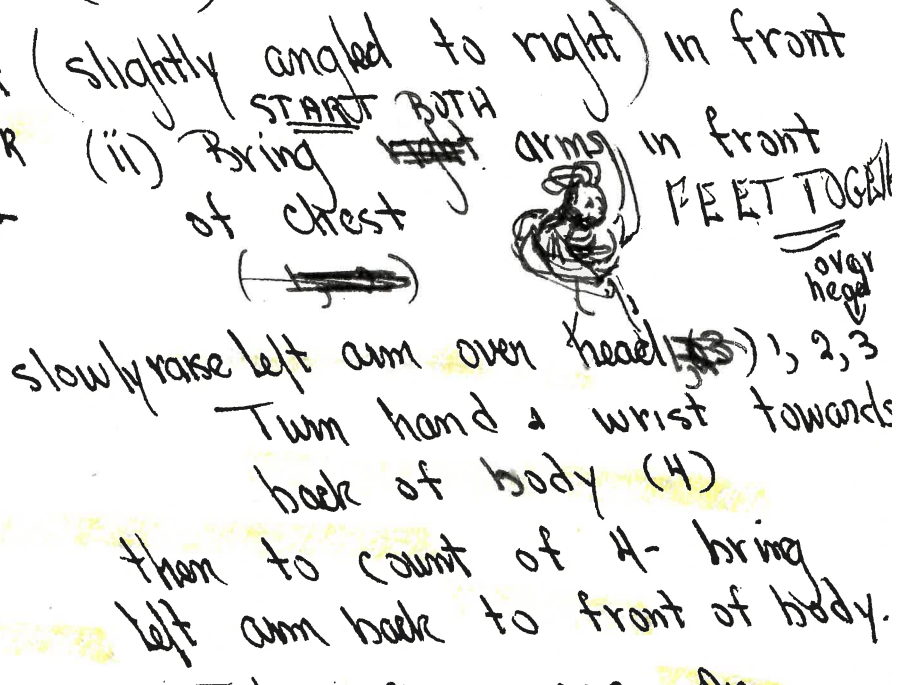 (slightly angled to right) in front
START BOTH
(ii) Bring arms in front
of chest
FEET TOGETH
over
head
slowly raise left arm over head 1, 2, 3
Turn hand & wrist towards
back of body (4)
then to count of 4- bring
left arm back to front of body.